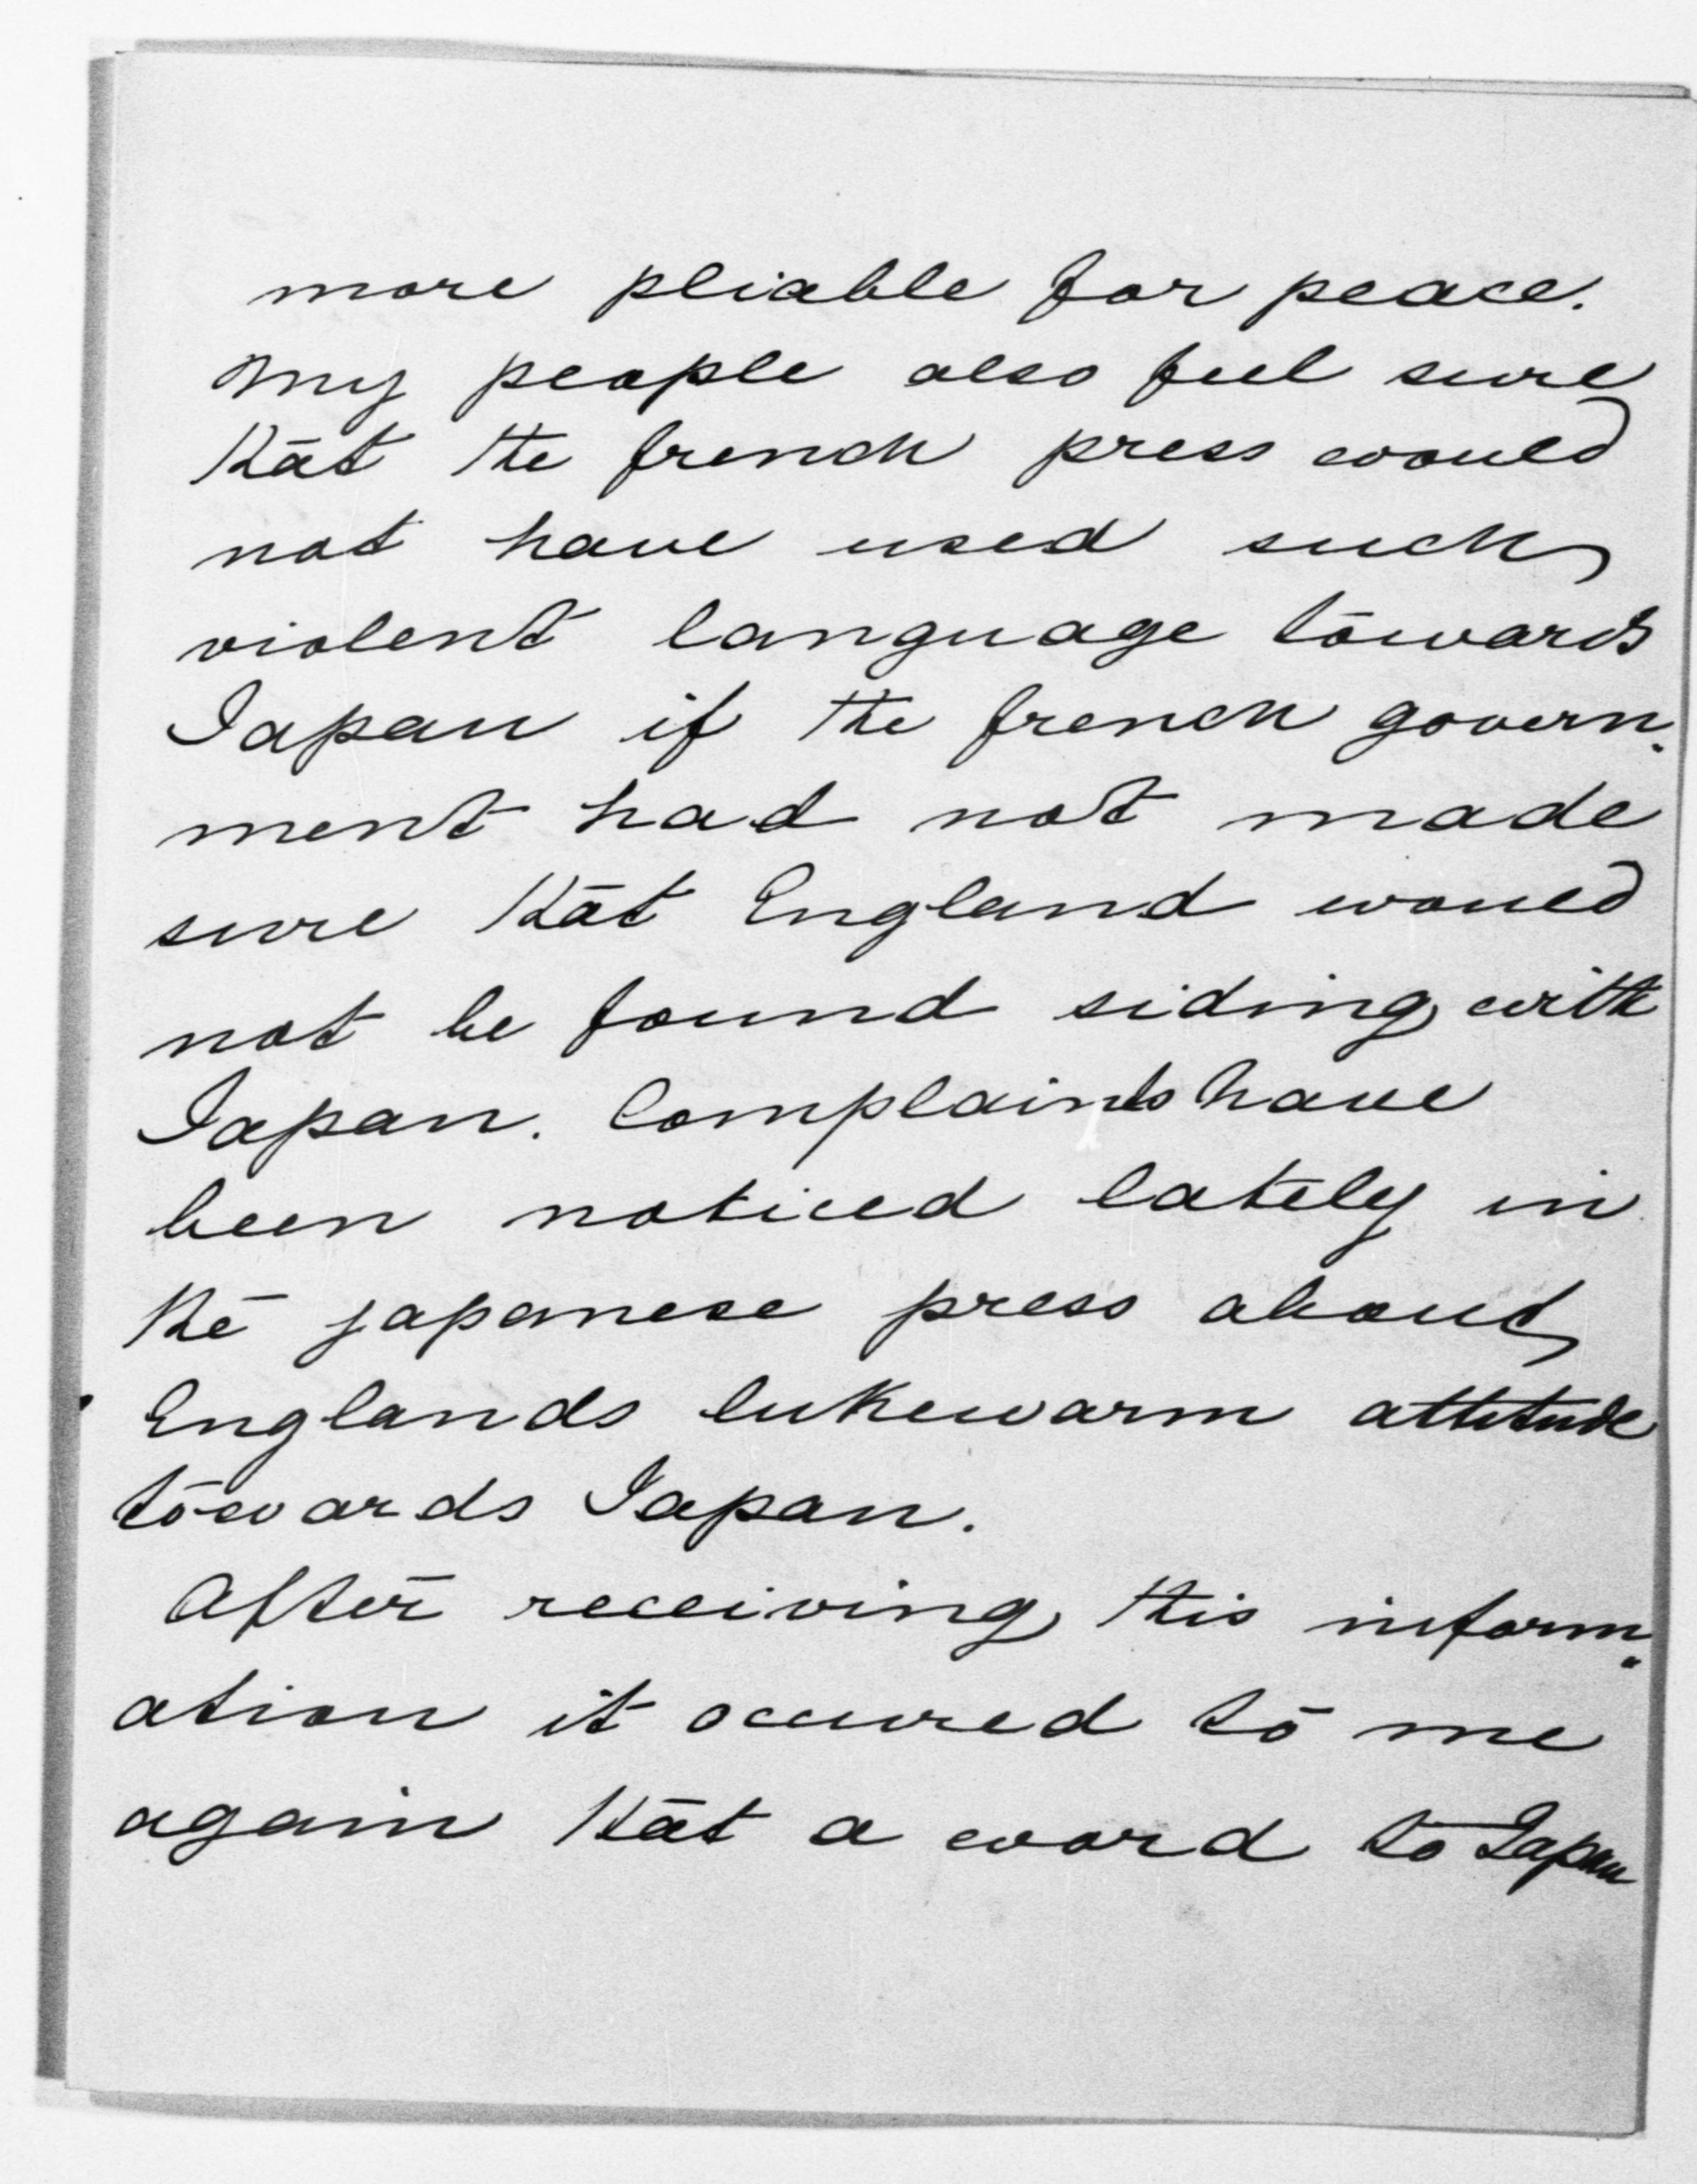 more pliable for peace.
My people also feel sure
that the french press would
not have used such
violent language towards
Japan if the french govern-
ment had not made
sure that England would
not be found siding with
Japan. Complaints have
been noticed lately in
the japanese press about
Englands lukewarm attitude
towards Japan.
After receiving this inform-
ation it occured to me
again that a word to Japan